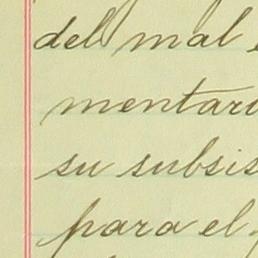 del mal
mentari
su subsis
para el